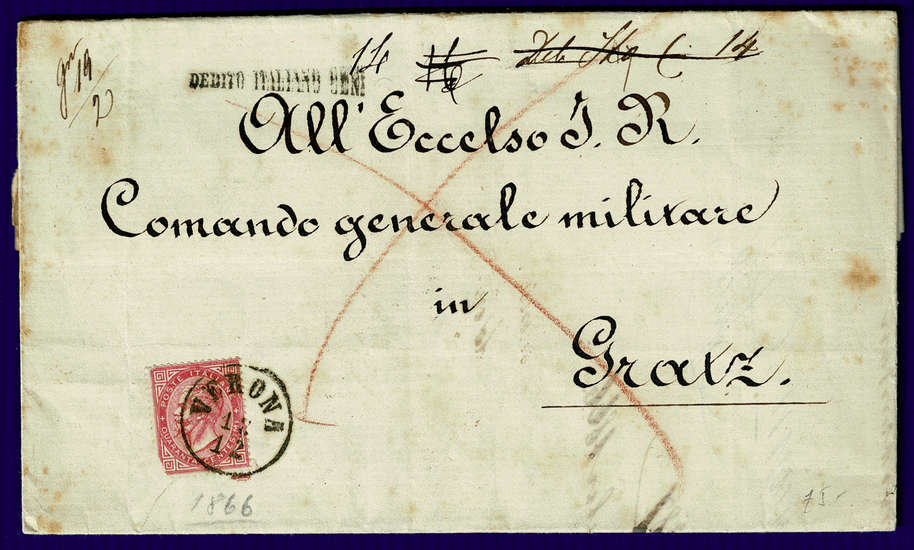 19
14 14
DEBITO ITALIANO CENT
All' Eccelso I. R.
Comando generale militare
in
Gratz.
POSTE ITALIANE
QUARANTA CENTESIMI
VERONA
12
1866
75-